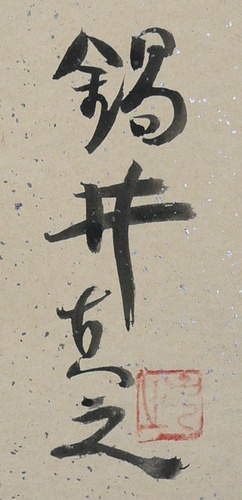 鍋井克之